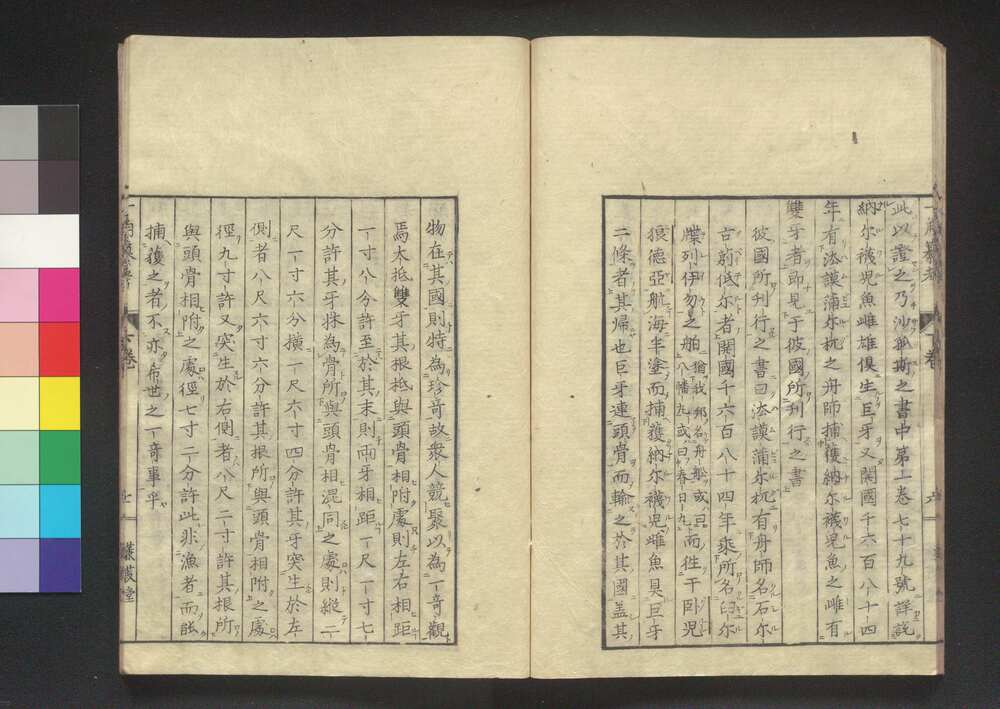 此以證之乃沙乢斯之書中第二卷七十九號詳說
納尓襪兒魚雌雄俱生巨牙又開國千六百八十四
年有法謨蒲尓杭之舟師捕獲納尓襪児魚之雌有
雙牙者即見于彼國所刊行之書
彼國所刊行之書曰法謨蒲尓杭有舟師名石尓
古蔚低尓者開國千六百八十四年乗所名臼尓
牒列伊勿之舶猶我邦名舟舩或曰八幡丸或曰春日丸而徃于卧児
狼德亞航海半塗而捕獲納尓襪児雌魚具巨牙
二條者其帰也巨牙連頭骨而輸之於其國盖其
物在其國則特為珍奇故衆人競聚以為一奇觀
焉大抵雙牙其根柢與頭骨相附處則左右相距
一寸八分許至於其末則両牙相距一尺一寸七
分許其牙牀為骨所與頭骨相混同之處則縦二
尺一寸六分横一尺六寸四分許其牙突生於左
側者八尺六寸六分許其根所與頭骨相附之處
徑九寸許又突生於右側者八尺二寸許其根所
與頭骨相附之處徑七寸二分許此非漁者而能
捕獲之者不亦希世之一奇事乎